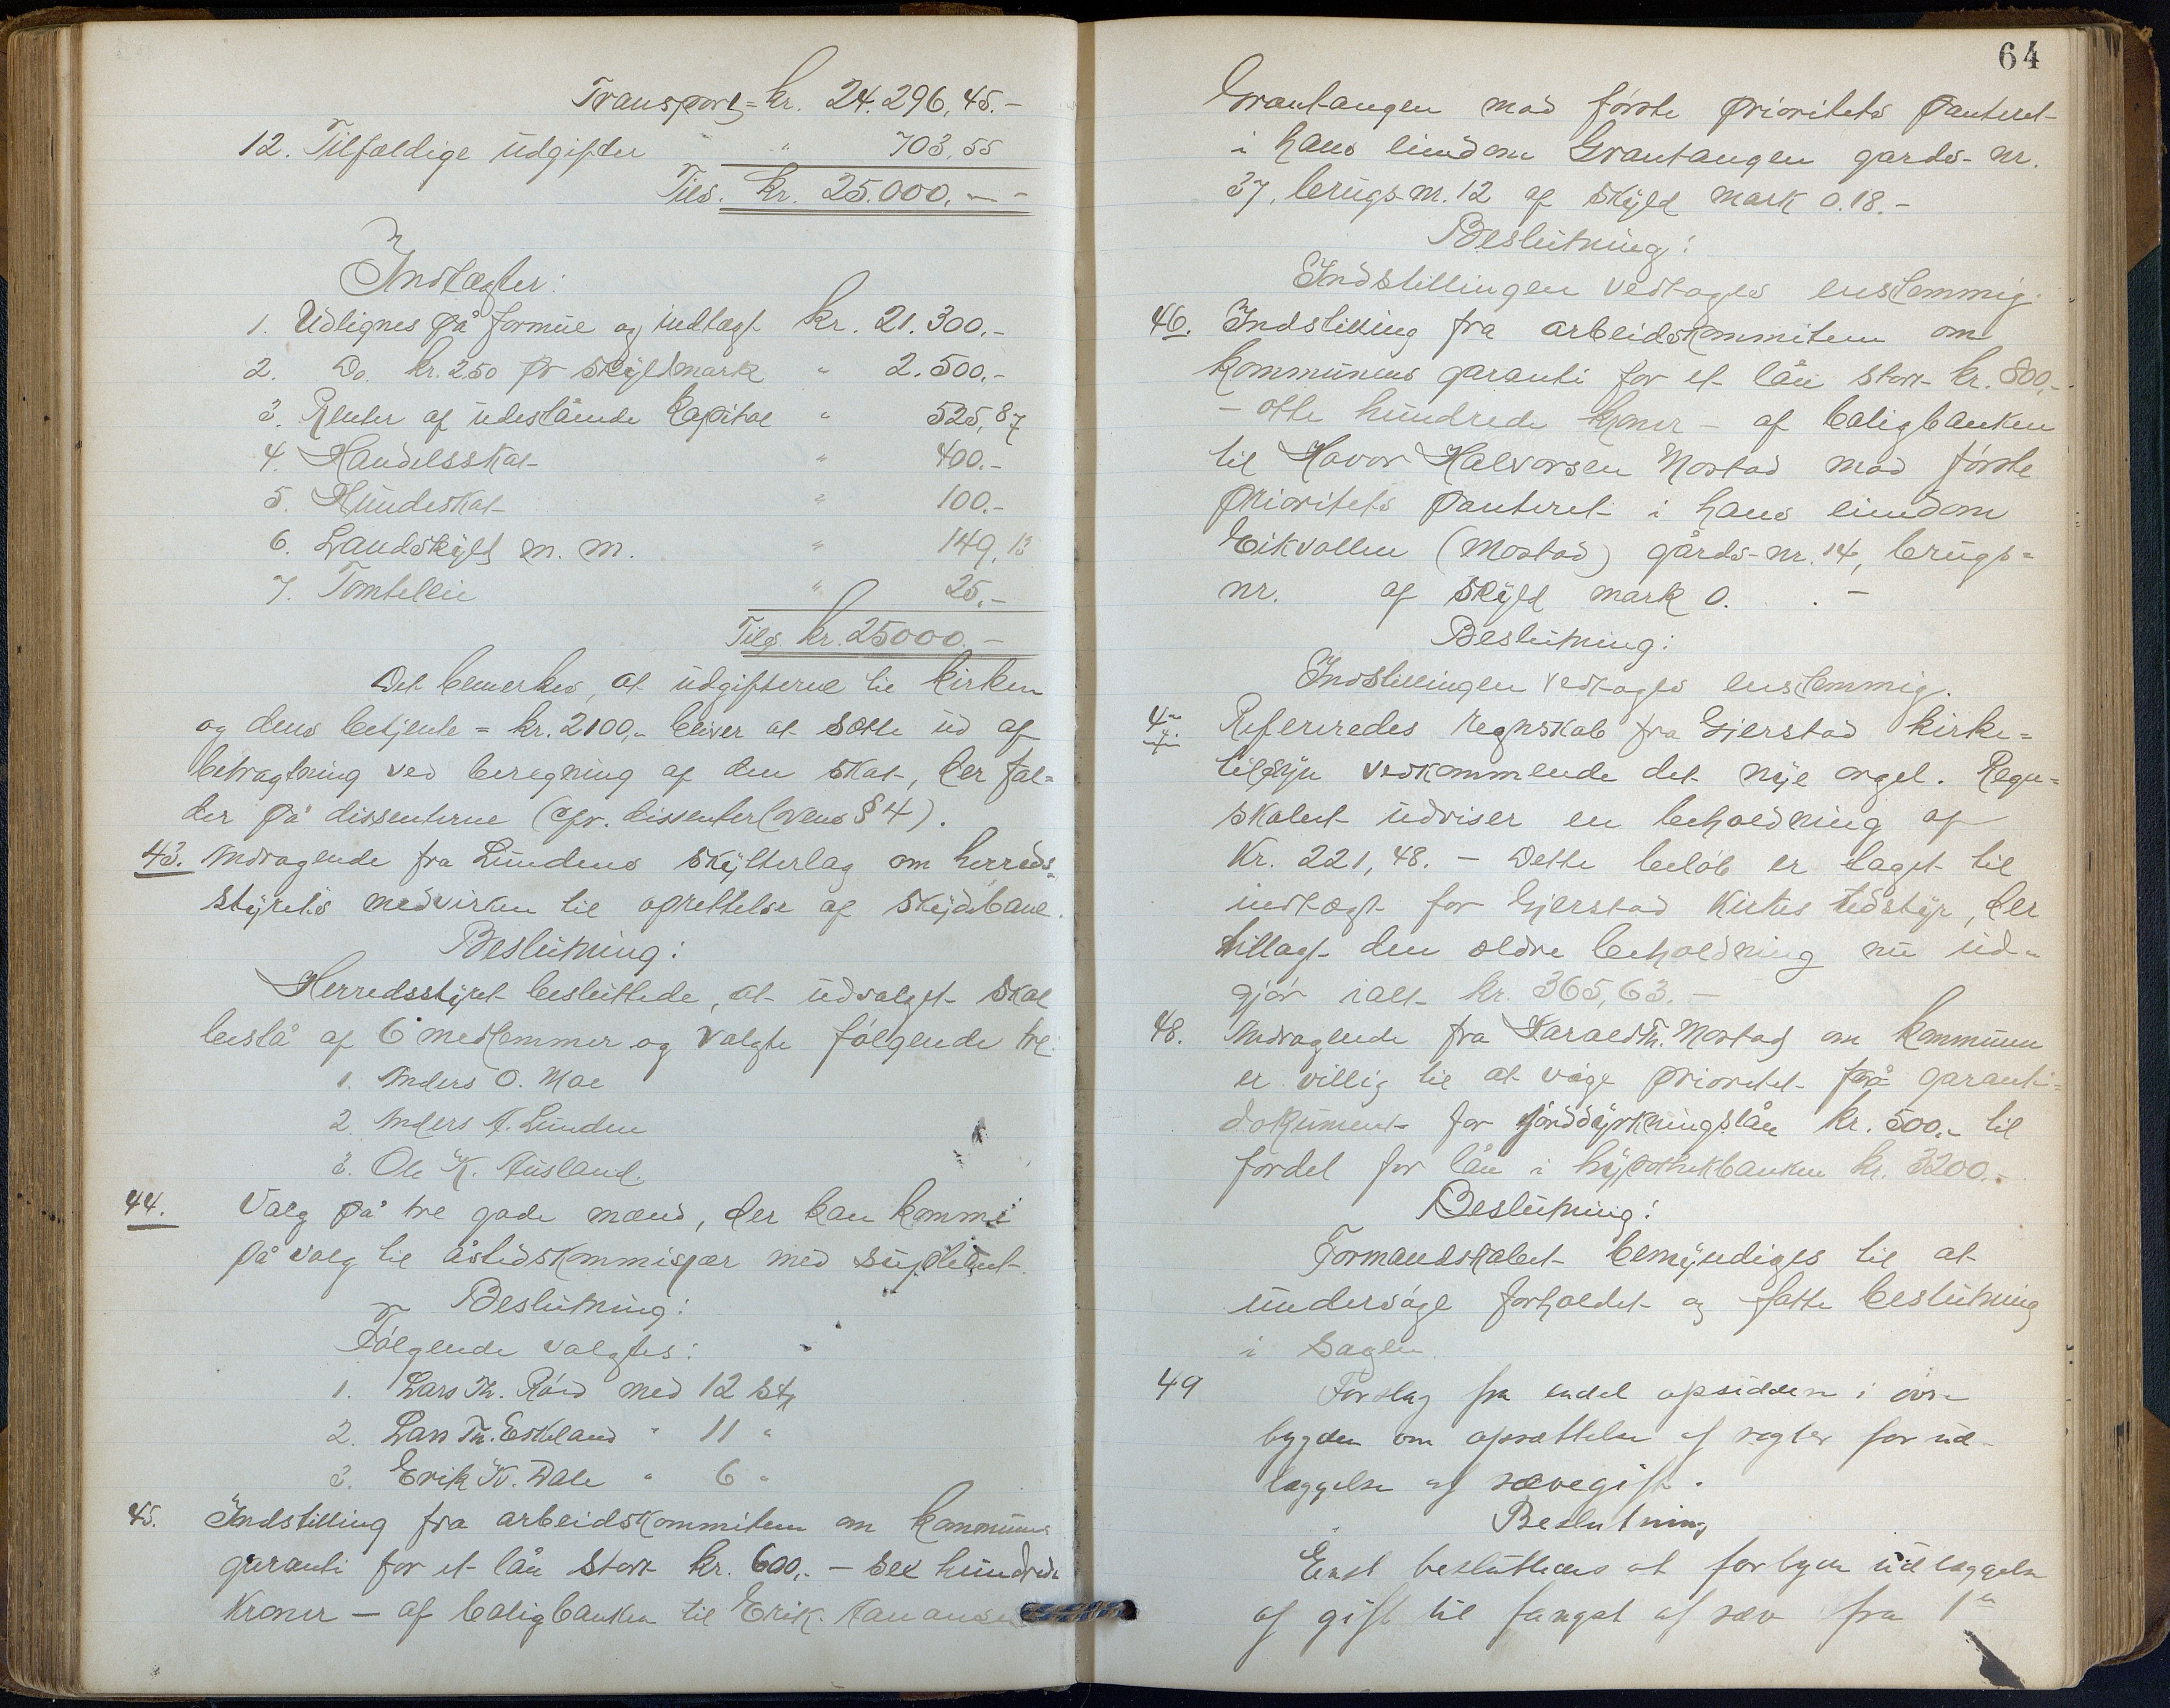 Transport = kr. 24.296,45.-
12. Tilfældige udgifter " 703,55
Tils. kr. 25.000,--
Indtægter:
1. Udlignes på formue og indtægt kr. 21.300.-
2. Do. kr. 2.50 pr skyldmark " 2.500,-
3. Renter af udestående kapital " 525,87
4. Handelsskat " 400.-
5. Hundeskat " 100.-
6. Landskyld m. m. " 149,13
7. Tomteleie " 25.-
Tils. kr. 25000.-
Det bemerkes, at udgifterne til kirken
og dens betjente = kr. 2100,- bliver at sætte ud af
betragtning ved beregning af den skat, der fal=
der på dissenterne (cfr. dissenterlovens § 4).
43. Andragende fra Lundens skytterlag om herreds=
styrets medvirken til oprettelse af skydebane.
Beslutning:
Herredsstyret besluttede, at udvalget skal
bestå af 6 medlemmer og valgte følgende tre:
1. Anders O. Moe
2. Anders A. Lunden
3. Ole K. Ausland.
44. Valg på tre gode mænd, der kan komme
på valg til åstedskommissær med supleant.
Beslutning:
Følgende valgtes:
1. Lars Th. Röed med 12 st
2. Lars Th. Eskeland " 11 "
3. Erik K. Dale " 6 "
45. Indstilling fra arbeidskommiteen om kommunens
garanti for et lån stort kr. 600,- – sex hundrede
kroner – af boligbanken til Erik
64
Grantangen mod første prioritets panteret
i hans eiendom Grantangen gards-nr.
37, brugs-nr. 12 af skyld mark 0.18.-
Beslutning:
Indstillingen vedtages enstemmig.
46. Indstilling fra arbeidskommiteen om
kommunens garanti for et lån stort kr. 800,-
– otte hundrede kroner – af boligbanken
til Havor Halvorsen Mostad mod første
prioritets panteret i hans eiendom
Eikvollen (Mostad) gårds-nr. 14, brugs=
nr. af skyld mark 0. . -
Beslutning:
Indstillingen vedtages enstemmig.
47. Refereredes regnskab fra Gjerstad kirke=
tilsyn vedkommende det nye orgel. Regn=
skabet udviser en beholdning af
Kr. 221,48. – Dette beløb er taget til
indtægt for Gjerstad kirkes tilsyn, der
tillagt den ældre beholdning nu ud=
gjør ialt kr. 365,63.-
48. Andragende fra Harald Th. Mostad om kommunen
er villig til at vige prioritet på garanti=
dokument for jorddyrkningslån kr. 500.- til
fordel for lån i hypothekbanken kr. 3200.-
Beslutning:
Formandskabet bemyndiges til at
undersøge forholdet og fatte beslutning
i sagen.
49 Forslag fra endel opsiddere i øvre
bygden om opsættelse af regler for ud-
læggelse af rævegift.
Beslutning
Enst besluttedes at forbyde udlæggelse
af gift til fangst af ræv fra 1ste